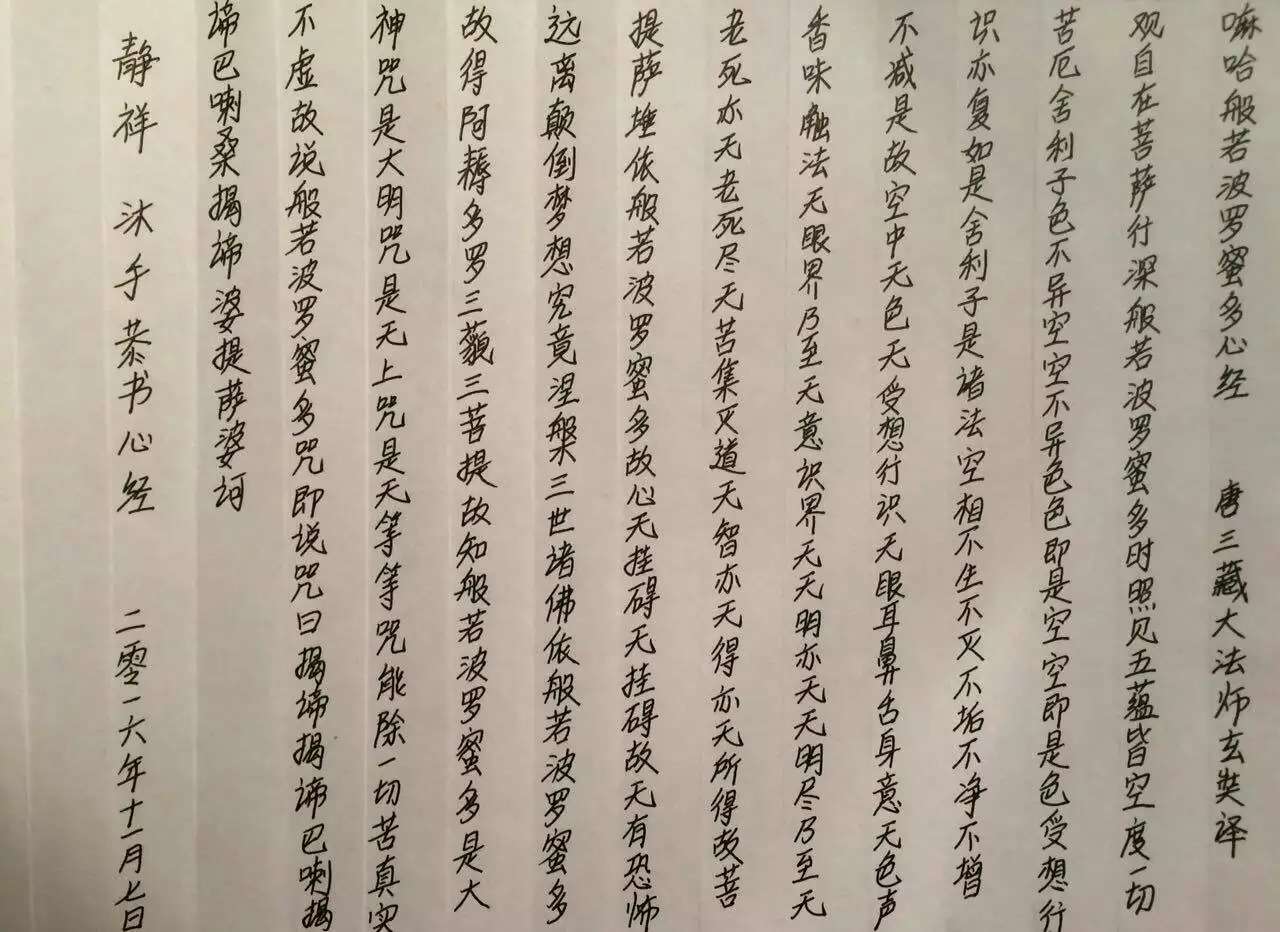 嘛哈般若波罗蜜多心经 唐三藏大法师玄奘译
观自在菩萨行深般若波罗蜜多时照见五蕴皆空度一切
苦厄舍利子色不异空空不异色色即是空空即是色受想行
识亦复如是舍利子是诸法空相不生不灭不垢不净不增
不减是故空中无色无受想行识无眼耳鼻舌身意无色声
香味触法无眼界乃至无意识界无无明亦无无明尽乃至无
老死亦无老死尽无苦集灭道无智亦无得亦无所得故菩
提萨埵依般若波罗蜜多故心无挂碍无挂碍故无有恐怖
远离颠倒梦想究竟涅槃三世诸佛依般若波罗蜜多
故得阿耨多罗三藐三菩提故知般若波罗蜜多是大
神咒是大明咒是无上咒是无等等咒能除一切苦真实
不虚故说般若波罗蜜多咒即说咒曰揭谛揭谛巴喇揭
谛巴喇桑揭谛婆提萨婆诃
静祥 沐手恭书心经 二零一六年十一月七日